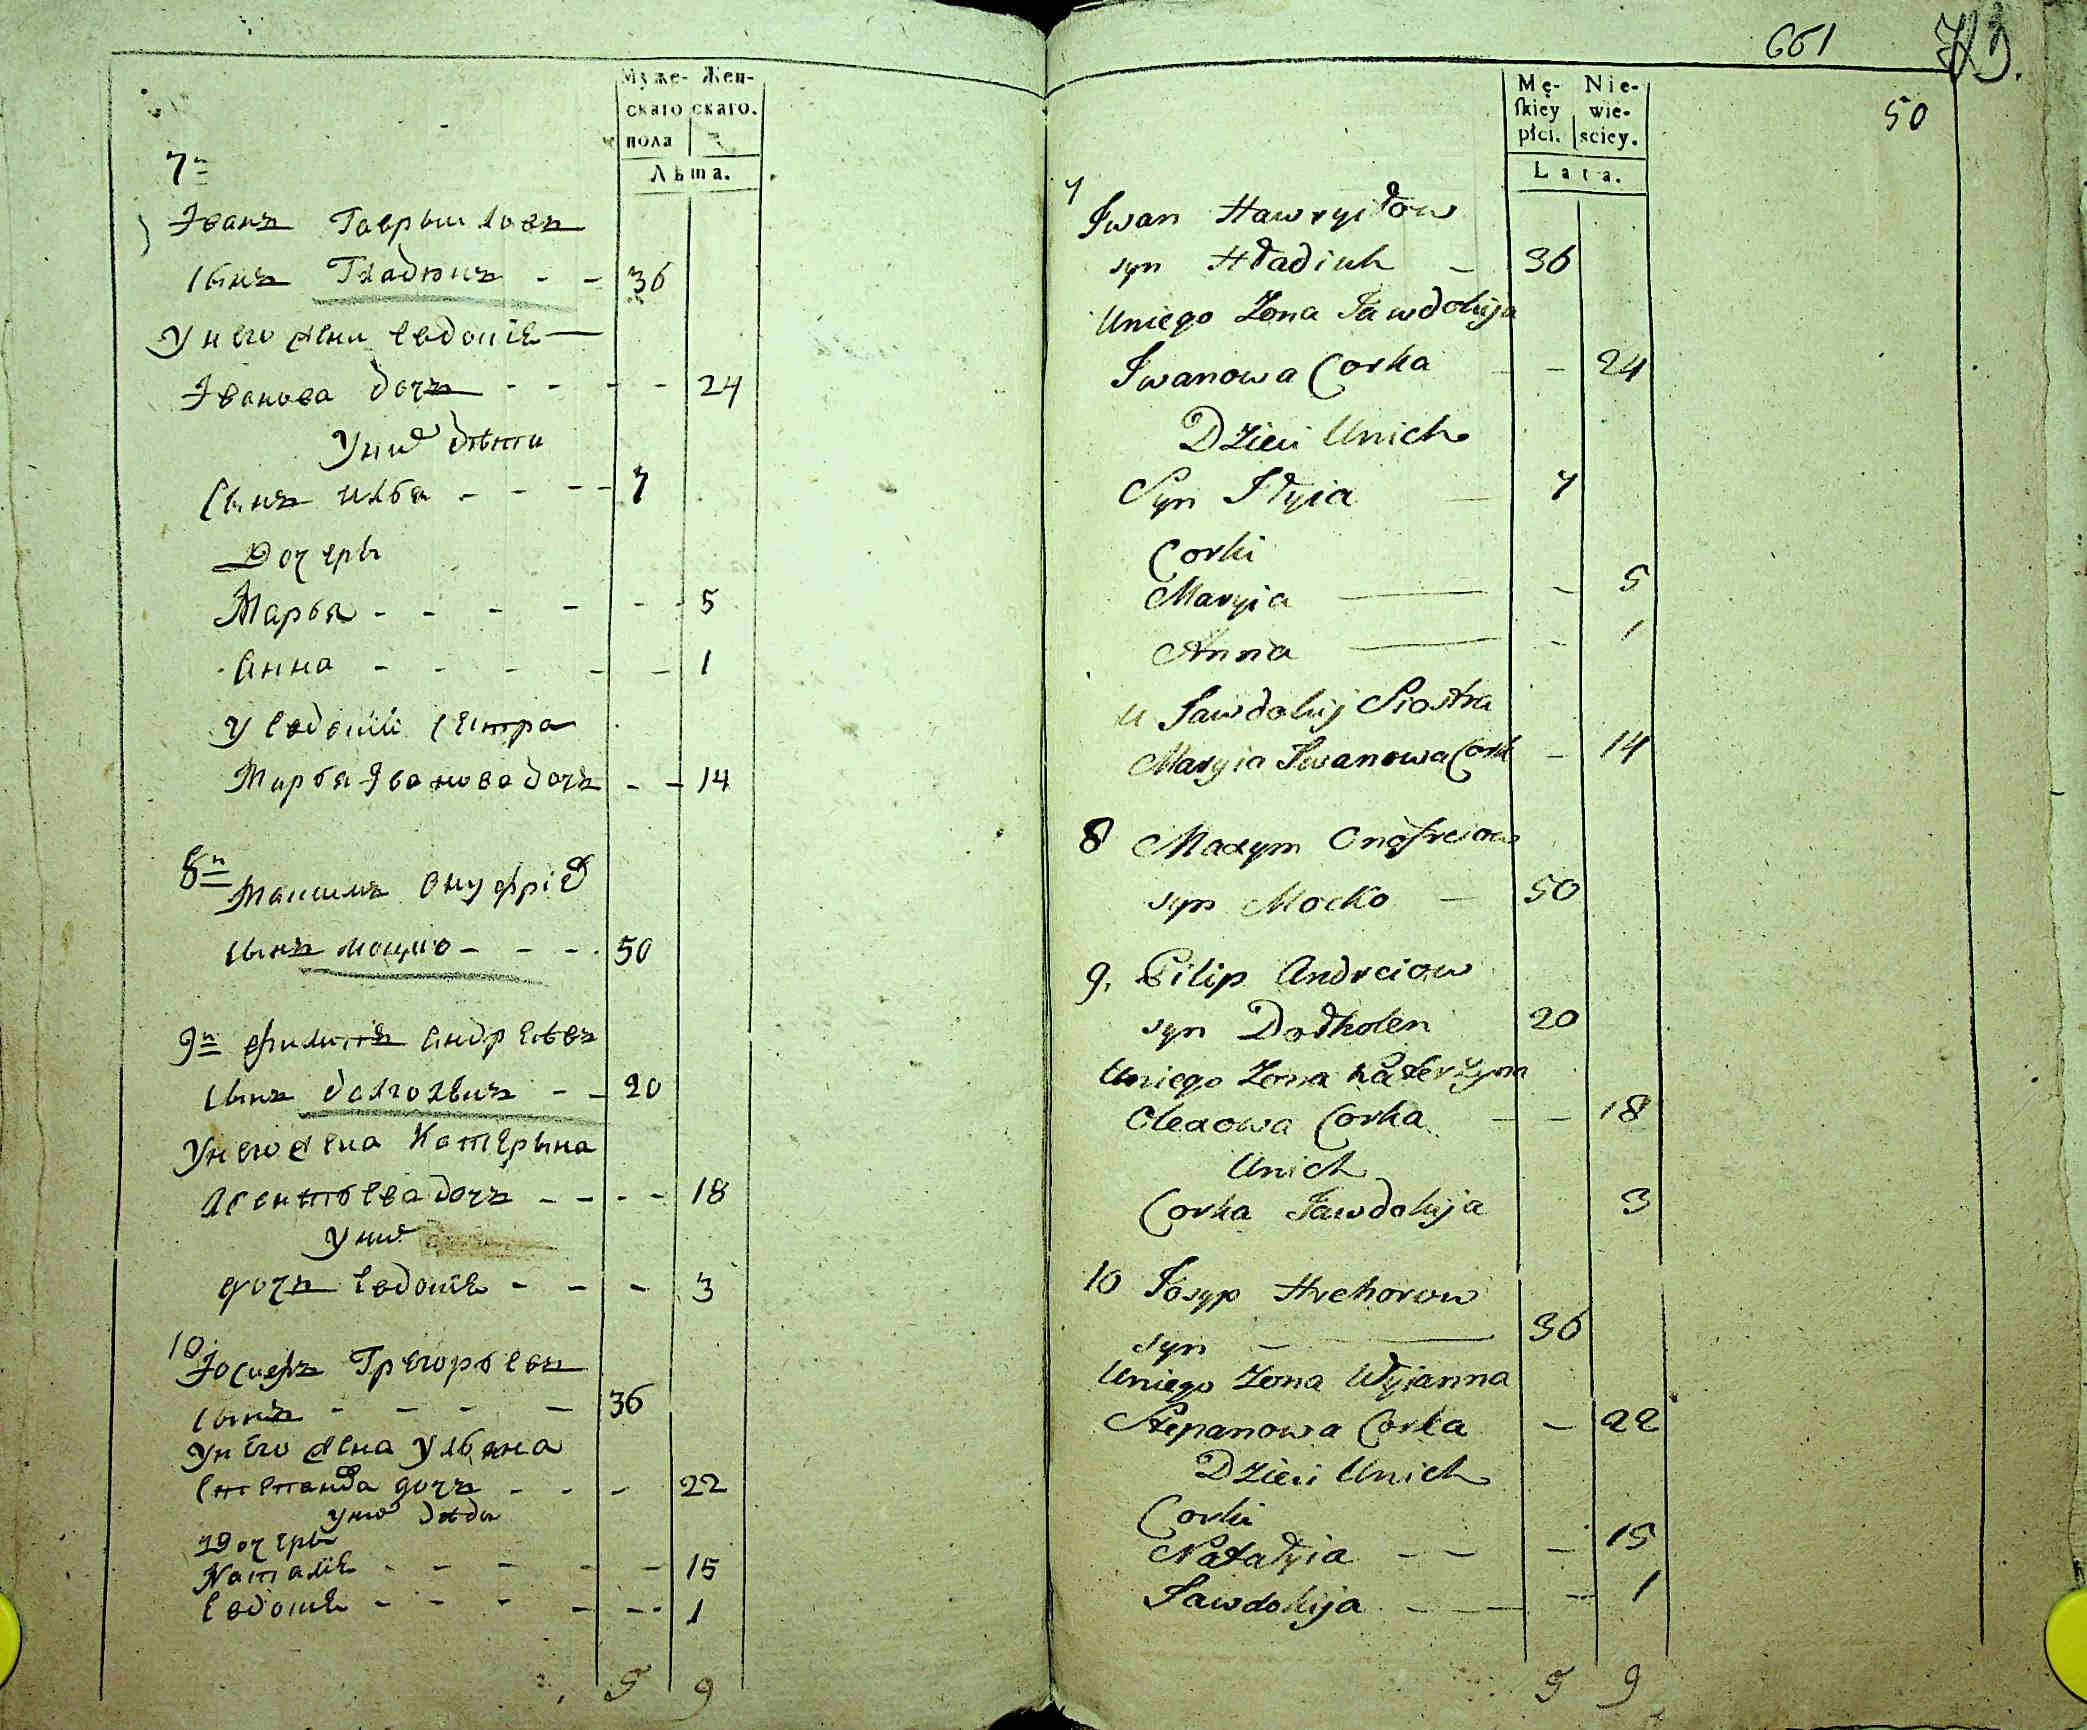 Муже- Жен-
скаго скаго.
пола
Лѣта.
7й
Іванъ Гаврыиловъ
сынъ Гладюкъ - - 36
У него жена Евдокія
Іванова дочъ - - - - 24
У них дѣти
Сынъ Илья - - - - 7
Дочеры
Марья - - - - - - 5
Анна - - - - - 1
У Евдокіи сестра
Марья Іванова дочъ - - 14
8й Максимъ Онуфріев
сынъ Моцко - - - 50
9й Филиппъ Андреевъ
сынъ - - 20
У него жена Катерына
дочъ - - - - 18
У них
дочъ Евдокія - - - 3
10 Іосифъ Грегорьевъ
сынъ - - - - 36
У него жена Ульяна
Степанова дочъ - - - 22
У них
Дочеры
Наталія - - - - - 15
Евдокія - - - - - 1
5 9
661
50
Mę- Nie-
skiey wie-
płci. sciey.
Lata.
7 Iwan Hawryłow
syn Hładiuk - 36
Uniego Zona Jawdokija
Iwanowa Corka - - 24
Dzieci Unich
Syn Iłyia - 7
Corki
Maryia - 5
Anna - 1
u Jawdokij Siostra
Maryia Iwanowa Cork - 14
8 Maxym Onofreiow
syn Mocko - 50
9. Filip Andreiow
syn Dołholen 20
Uniego Zona Katerzyna
Olexowa Corka - - 18
Unich
Corka Jawdokija 3
10 Josyp Hrehorow
syn - 36
Uniego Zona Ulyianna
Stepanowa Corka - 22
Dzieci Unich
Corki
Natałyia - - - 15
Jawdokija - - - 1
5 9